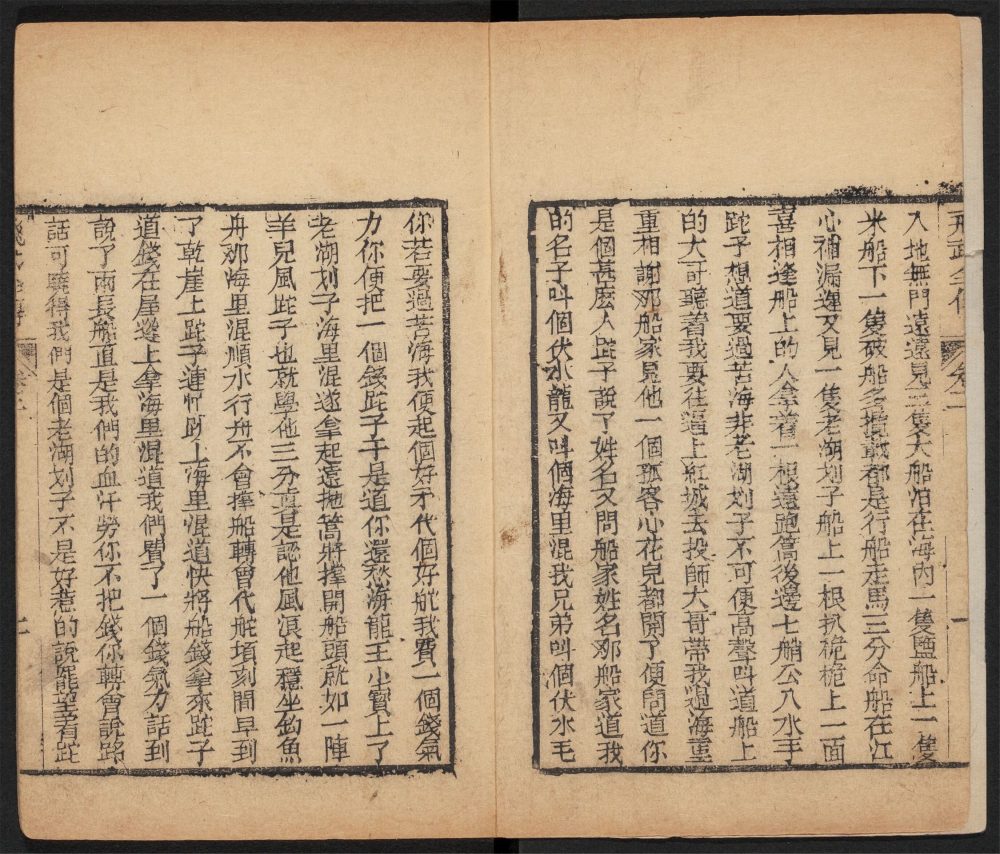 卷二
入地無門遠遠見三隻大船泊在海內一隻鹽船上一隻
米船下一隻破船多攬載都是行船走馬三分命船在江
心補漏遲又見一隻老湖划子船上一根扒桅桅上一面
喜相逢船上的人拿着一根遠跑篙後邊七艄公八水手
跎子想道要過苦海非老湖划子不可便高聲叫道船上
的大哥聽着我要往逼上紅城去投師大哥帶我過海重
重相謝那船家見他一個孤客心花兒都開了便問道你
是個甚麼人跎子說了姓名又問船家姓名那船家道我
的名子叫個伏水龍又叫個海里混我兄弟叫個伏水毛
一
你若要過苦海我便起個好矛代個好舵我費一個錢氣
力你便把一個錢跎子于是道你還愁海龍王小寶上了
老湖划子海里混遂拿起遠拋篙將撑開船頭就如一陣
羊兒風跎子也就學他三分真是認他風浪起穩坐釣魚
舟那海里混順水行舟不會撑船轉會代舵頃刻間早到
了乾崖上跎子連忙跳上海里混道快將船錢拿來跎子
道錢在崖邊上拿海里混道我們費了一個錢氣力話到
說了兩長船直是我們的血汗勞你不把錢你轉會說路
話可曉得我們是個老湖划子不是好惹的說罷望着跎
二